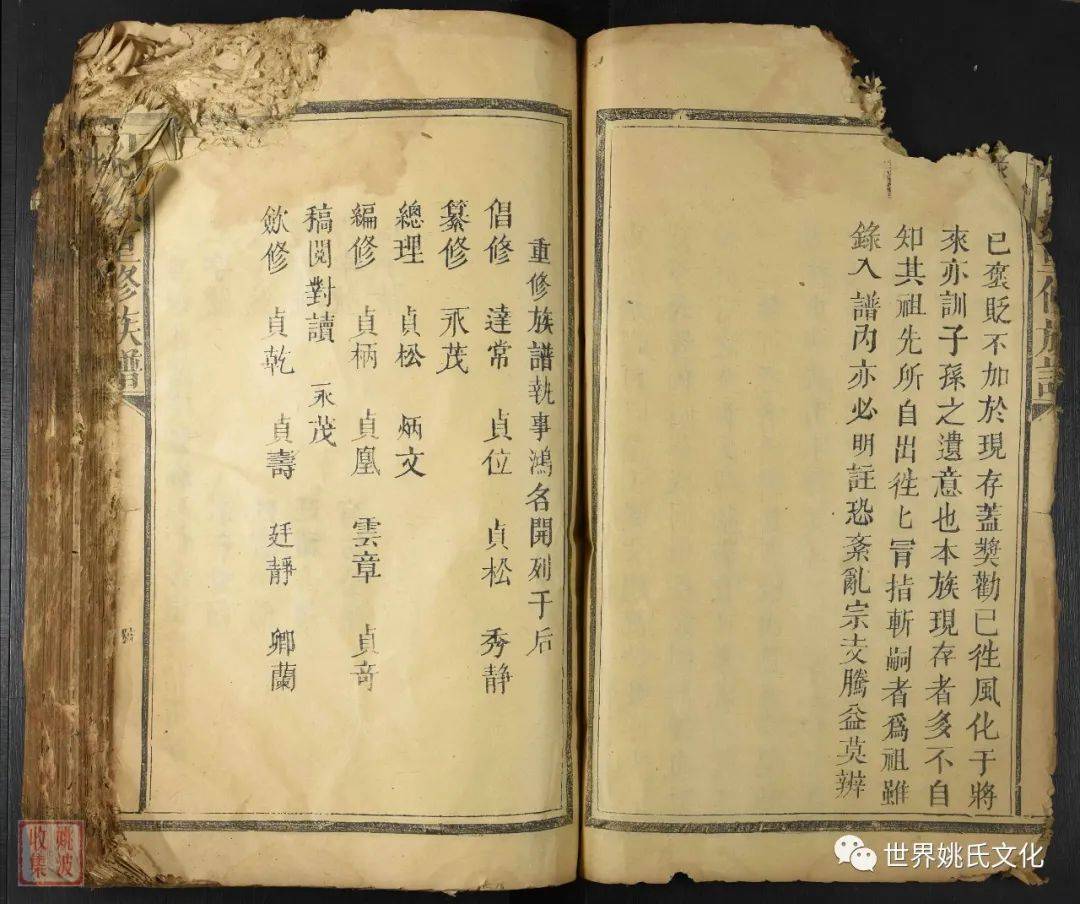 已褒貶不加於現存蓋獎勸已徃風化于將
來亦訓子孫之遺意也本族現存者多不自
知其祖先所自出徃匕冐指斬嗣者爲祖雖
錄入譜内亦必明註恐紊亂宗支騰益莫辨
重修族譜執事鴻名開列于后
倡修 達常 貞位 貞松 秀静
纂修 永茂
總理 貞松 炳文
編修 貞柄 貞凰 雲章 貞竒
稿閲對讀 永茂
歛修 貞乾 貞壽 廷靜 卿蘭
重修族譜
修族譜
姚波
收集
世界姚氏文化